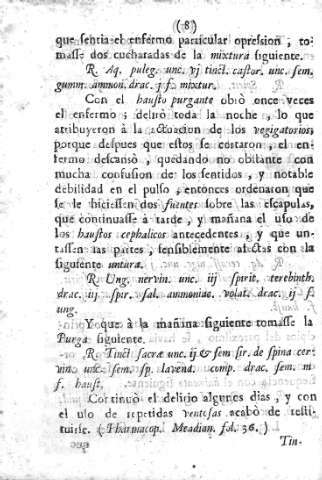 ( 8 )
que sentia el enfermo particular opression , to-
masse dos cucharadas de la mixtura siguiente.
R. Aq. puleg. unc. vj tinct. castor. unc. sem.
gumm. ammon. drac. j f. mixtur.
Con el hausto purgante obrò once veces
el enfermo ; deliró toda la noche , lo que
atribuyeron à la actuacion de los vegigatorios,
porque despues que estos se cortaron , el en-
fermo descansò , quedando no obstante con
mucha confusion de los sentidos , y notable
debilidad en el pulso , entonces ordenaron que
se le hiciessen dos fuentes sobre las escapulas,
que continuasse à tarde , y mañana el uso de
los haustos cephalicos antecedentes , y que un-
tassen las partes , sensiblemente afectas con la
siguiente untura.
R. Ung. nervin. unc. iij spirit. terebinth.
drac. iij spir. sal. ammoniac. volat. drac. ij f.
ung.
Y que à la mañana siguiente tomasse la
Purga siguiente.
R. Tinct. sacræ unc. ij & sem sir. de spina cer-
vin unc. sem. sp. lavend. comp. drac. sem. m
f. haust.
Continuò el delirio algunos dias , y con
el uso de repetidas ventosas acabò de resti-
tuirse. ( Tharmacop. Meadian. fol. 36. )
Tin-